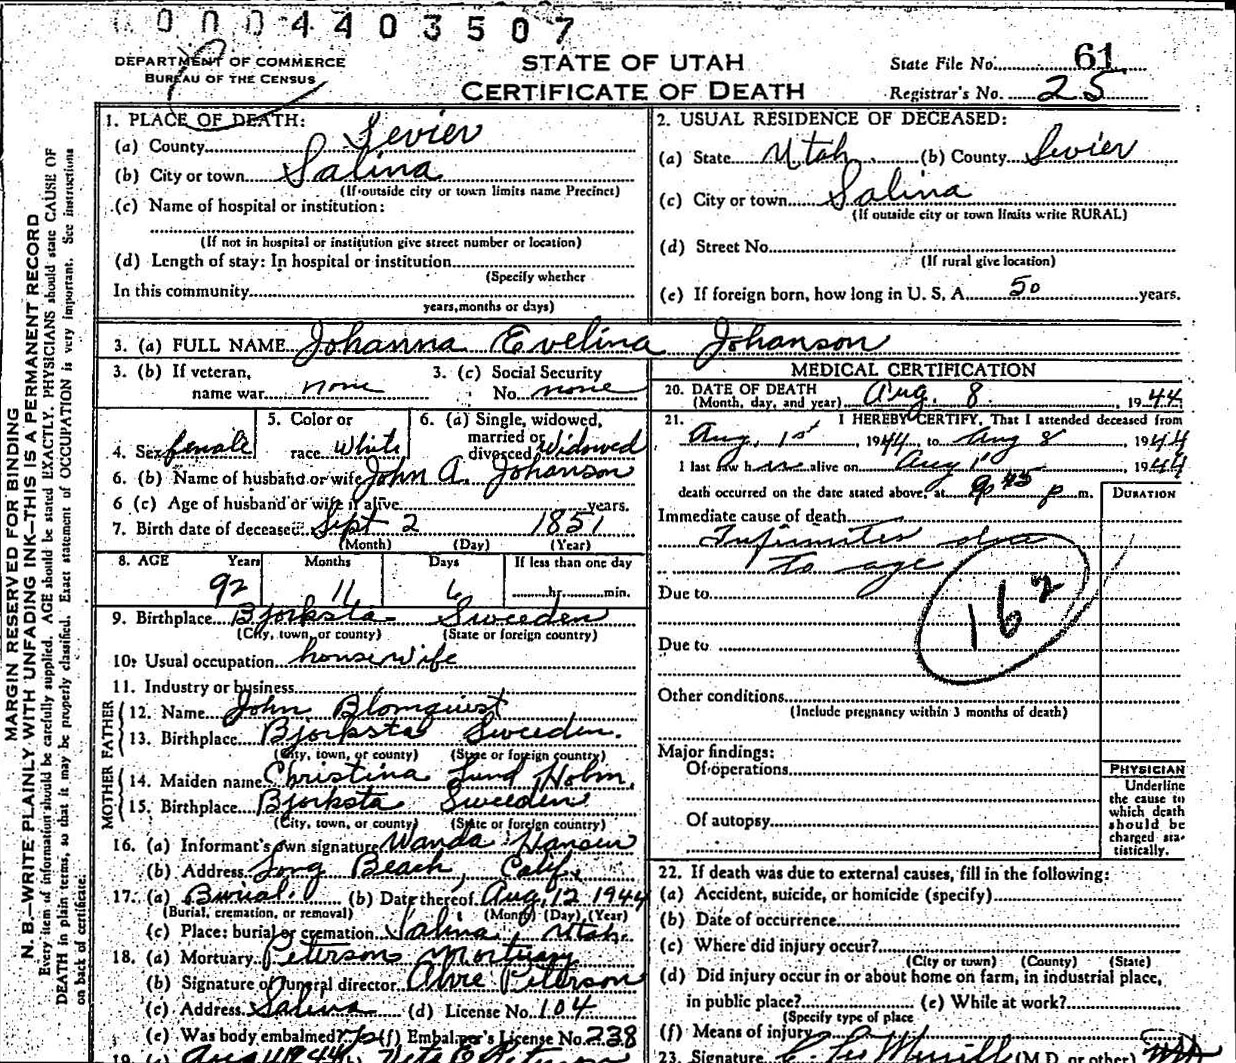 0004403507
DEPARTMENT OF COMMERCE
BUREAU OF THE CENSUS
STATE OF UTAH
CERTIFICATE OF DEATH
State File No. 61
Registrar's No. 25
MARGIN RESERVED FOR BINDING
N. B.—WRITE PLAINLY WITH UNFADING INK—THIS IS A PERMANENT RECORD
Every item of information should be carefully supplied. AGE should be stated EXACTLY. PHYSICIANS should state CAUSE OF
DEATH in plain terms, so that it may be properly classified. Exact statement of OCCUPATION is very important. See instructions
on back of certificate.
1. PLACE OF DEATH:
(a) County Sevier
(b) City or town Salina
(If outside city or town limits name Precinct)
(c) Name of hospital or institution:
(If not in hospital or institution give street number or location)
(d) Length of stay: In hospital or institution
(Specify whether
In this community
years, months or days)
2. USUAL RESIDENCE OF DECEASED:
(a) State Utah (b) County Sevier
(c) City or town Salina
(If outside city or town limits write RURAL)
(d) Street No.
(If rural give location)
(e) If foreign born, how long in U. S. A. 50 years.
3. (a) FULL NAME Johanna Evelina Johanson
3. (b) If veteran, name war none
3. (c) Social Security No. none
4. Sex female
5. Color or race White
6. (a) Single, widowed, married or divorced Widowed
6. (b) Name of husband or wife John A. Johanson
6 (c) Age of husband or wife if alive years.
7. Birth date of deceased: Sept 2 1851
(Month) (Day) (Year)
8. AGE Years Months Days If less than one day
92 11 6 hr. min.
9. Birthplace Bjorksta Sweeden
(City, town, or county) (State or foreign country)
10. Usual occupation housewife
11. Industry or business
FATHER
12. Name John Blomquist
13. Birthplace Bjorksta Sweeden.
(City, town, or county) (State or foreign country)
MOTHER
14. Maiden name Christina Lund Holm.
15. Birthplace Bjorksta Sweeden
(City, town, or county) (State or foreign country)
16. (a) Informant's own signature Wanda Hansen
(b) Address Long Beach, Calif.
17. (a) Burial. (b) Date thereof Aug. 12 1944
(Burial, cremation, or removal) (Month) (Day) (Year)
(c) Place: burial or cremation Salina, Utah.
18. (a) Mortuary Petersons Mortuary
(b) Signature of funeral director Peterson
(c) Address Salina (d) License No. 104
(e) Was body embalmed? (f) Embalmer's License No. 238
19. (a) Aug 1944
MEDICAL CERTIFICATION
20. DATE OF DEATH
(Month, day, and year) Aug. 8, 1944
21. I HEREBY CERTIFY, That I attended deceased from
Aug, 1st, 1944, to Aug 8, 1944
I last saw h alive on Aug 1, 1944
death occurred on the date stated above, at 9 45 p m.
DURATION
Immediate cause of death
Infirmites due
To age
Due to
162
Due to
Other conditions
(Include pregnancy within 3 months of death)
Major findings:
Of operations
Of autopsy
PHYSICIAN
Underline
the cause to
which death
should be
charged sta-
tistically.
22. If death was due to external causes, fill in the following:
(a) Accident, suicide, or homicide (specify)
(b) Date of occurrence
(c) Where did injury occur?
(City or town) (County) (State)
(d) Did injury occur in or about home on farm, in industrial place,
in public place? (e) While at work?
(Specify type of place
(f) Means of injury
23. Signature (M.D. or other)